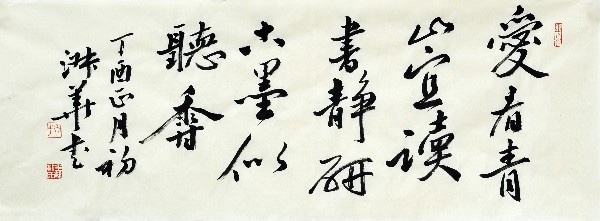 愛看青
山宜讀
書静研
古墨似
聽香
丁酉正月初
華書